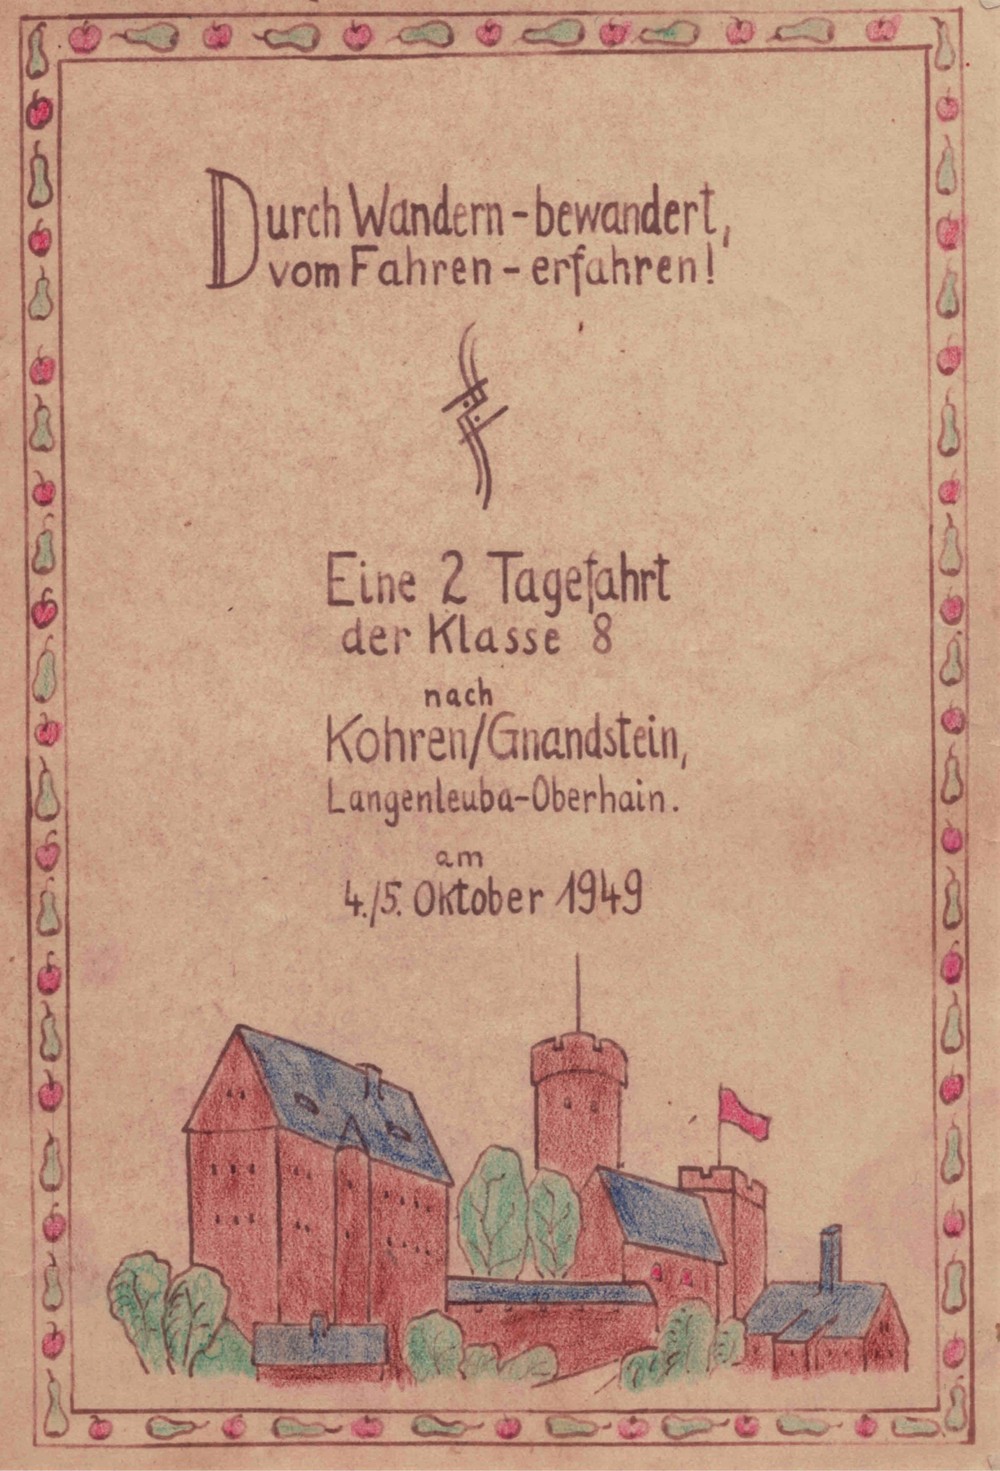 Durch Wandern - bewandert,
vom Fahren - erfahren!
Eine 2 Tagefahrt
der Klasse 8
nach
Kohren/Gnandstein,
Langenleuba-Oberhain.
am
4./5. Oktober 1949